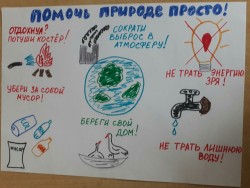 ПОМОЧЬ ПРИРОДЕ ПРОСТО!
ОТДОХНУЛ?
ПОТУШИ КОСТЁР!
СОКРАТИ
ВЫБРОС В
АТМОСФЕРУ!
НЕ ТРАТЬ ЭНЕРГИЮ
ЗРЯ!
УБЕРИ ЗА СОБОЙ
МУСОР!
БЕРЕГИ СВОЙ
ДОМ!
НЕ ТРАТЬ ЛИШНЮЮ
ВОДУ!